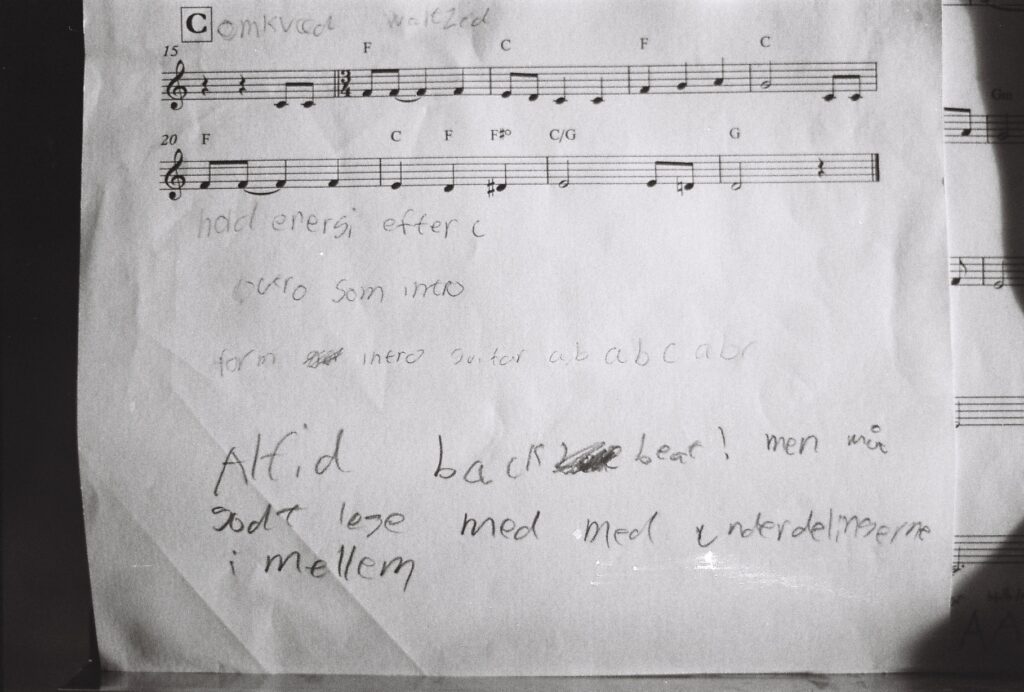 C omkvæd waltzed
15 F C F C
3 4
20 F C F F#° C/G G
Gm
hold energi efter c
outro som intro
form intro guitar ab ab c abc
Altid back beat! men må
godt lege med med underdelingerne
i mellem